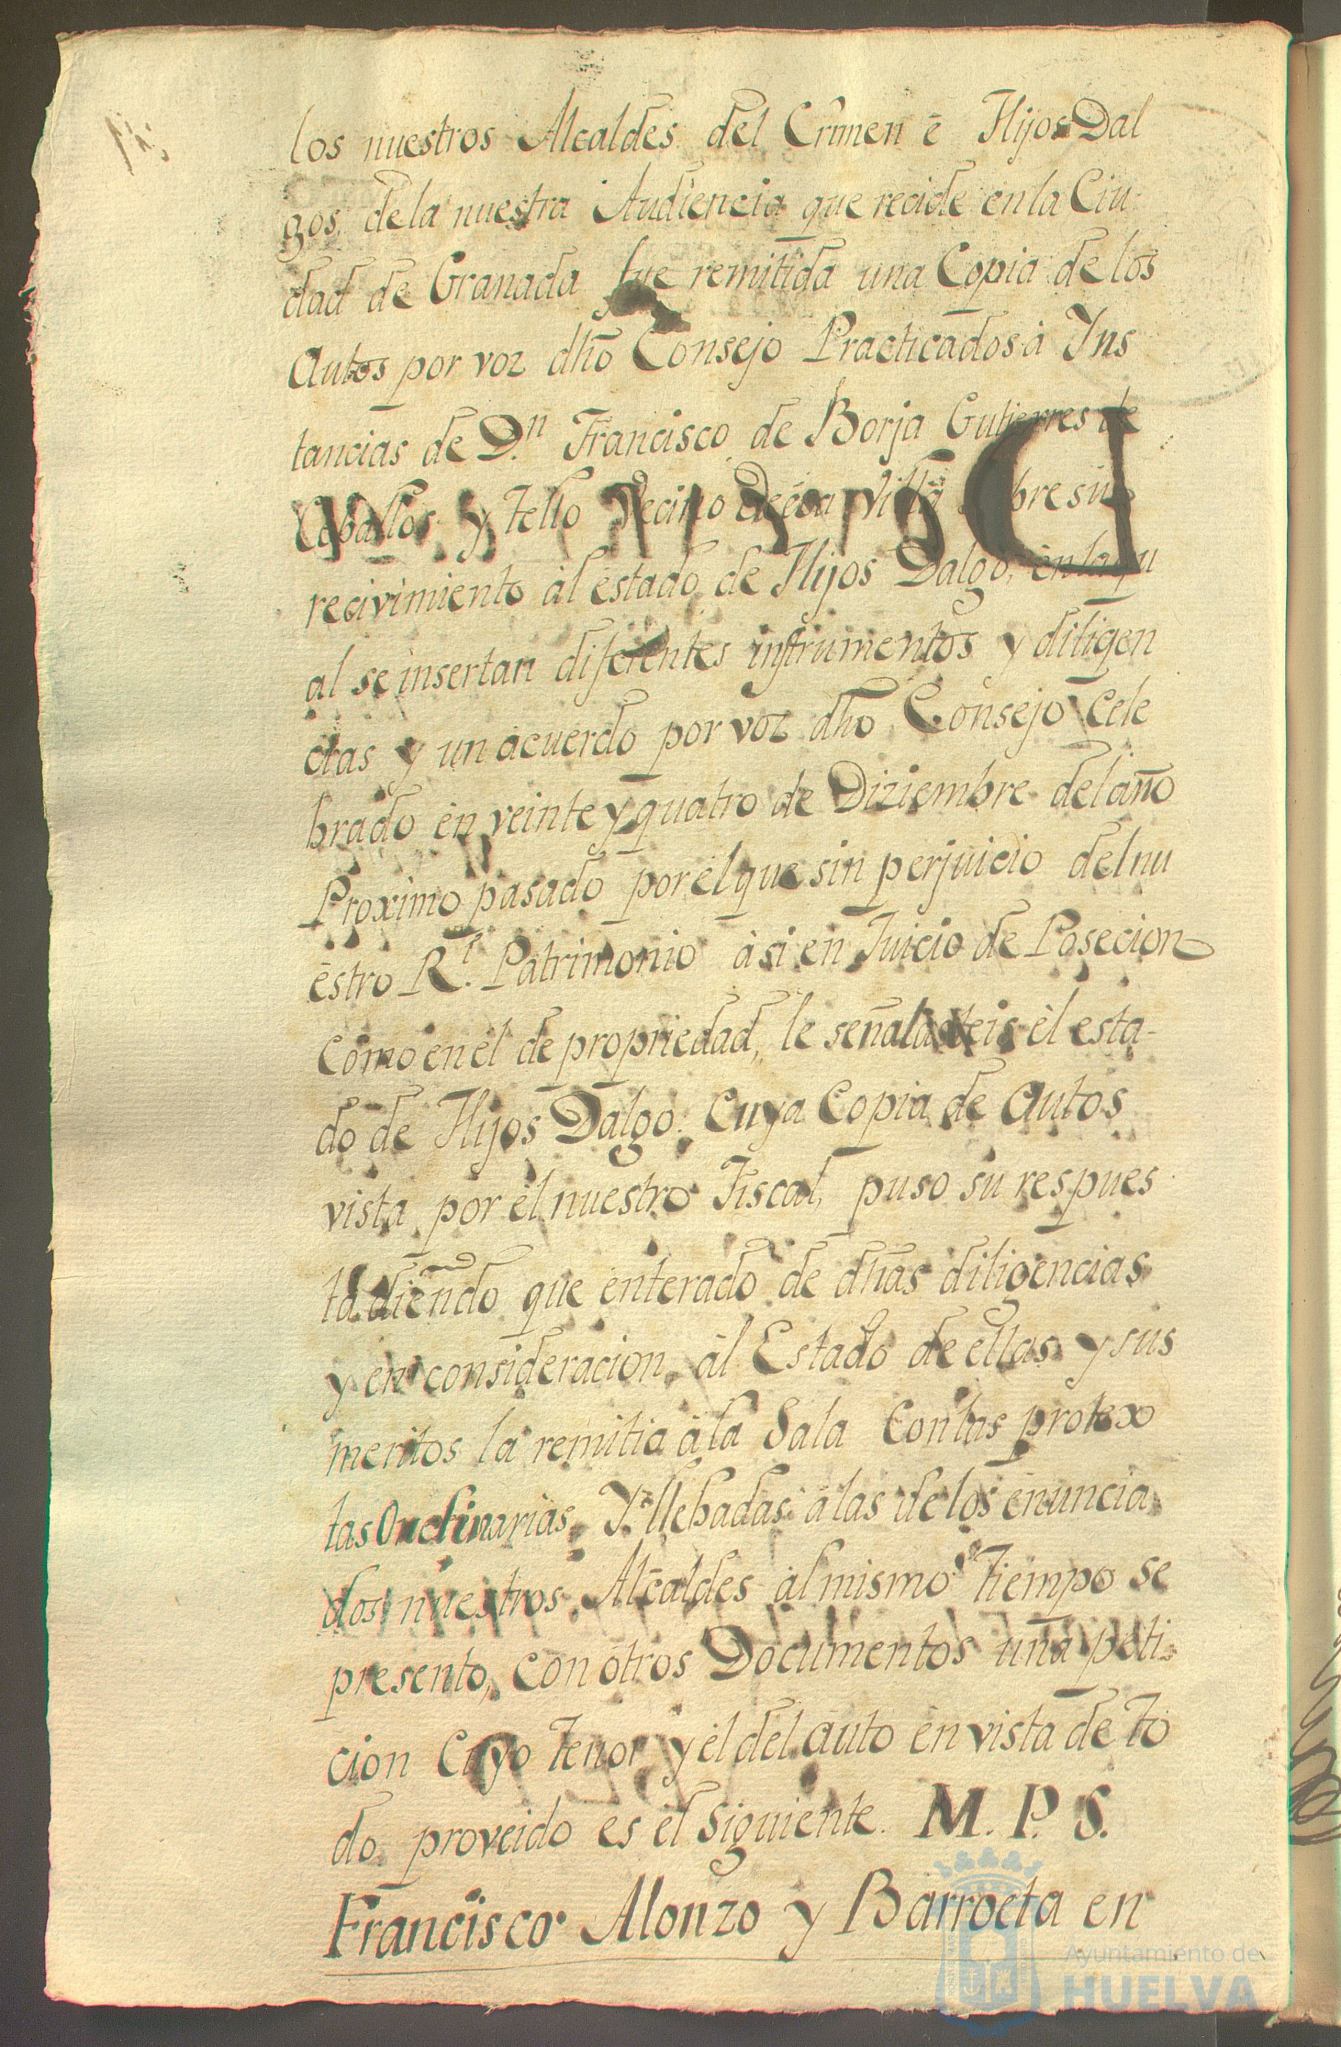 los nuestros Alcaldes del Crimen ê Hijos Dal
gos, dela nuestra Audiencia que recide en la Ciu-
dad de Granada fue remitida una Copia de los
Autos por voz dho Consejo Practicados à Yns
tancias de D.n Francisco de Borja Gutierres de
Ceballos y Tello Vecino de esa Villa sobre su
recivimiento àl estado de Hijos Dalgo, en la qu
al se insertan diferentes instrumentos y diligen
cias y un acuerdo por voz dho Consejo Cele
brado en veinte y quatro de Diziembre del año
Proximo pasado por el que sin perjuicio del nu
estro R.l Patrimonio àsi en Juicio de Posecion
Como en el de propriedad, le señalasteis èl esta-
do de Hijos Dalgo: Cuya Copia de Autos
vista por el nuestro Fiscal, puso su respues
ta diendo que enterado de dhas diligencias
y en consideracion, àl Estado de ellas y sus
meritos la remitia à la Sala Con las protex
tas Ordinarias, Y llebadas à las de los enuncia
dos nuestros Alcaldes àl mismo Tiempo se
presento, con otros Documentos una peti-
cion Cuyo Tenor y el del Auto en vista de To
do proveido es el Siguiente. M. P. S.
Francisco Alonzo y Barroeta en
Ayuntamiento de
HUELVA